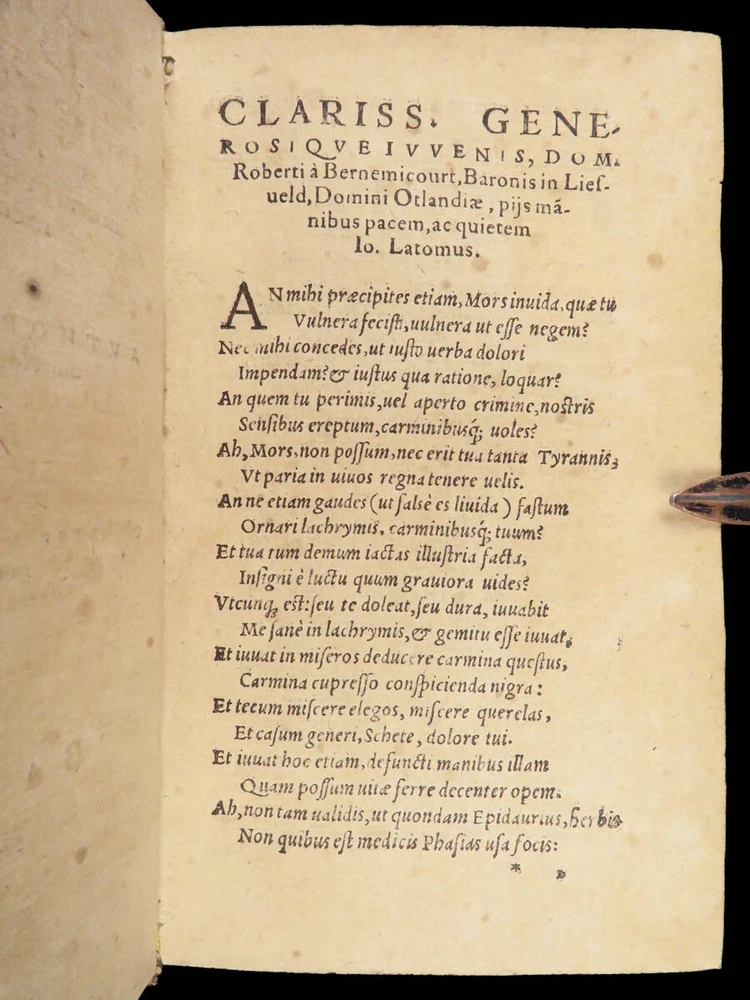 CLARISS. GENE-
ROSIQVE IVVENIS, DOM.
Roberti à Bernemicourt, Baronis in Lies-
ueld, Domini Otlandiæ, pijs mā-
nibus pacem, ac quietem
Io. Latomus.
AN mihi præcipites etiam, Mors inuida, quæ tu
Vulnera fecisti, uulnera ut esse negem?
Nec mihi concedes, ut iusto uerba dolori
Impendam? & iustus qua ratione, loquar?
An quem tu perimis, uel aperto crimine, nostris
Sensibus ereptum, carminibusq́; uoles?
Ah, Mors, non possum, nec erit tua tanta Tyrannis,
Vt paria in uiuos regna tenere uelis.
An ne etiam gaudes (ut falsè es liuida) fastum
Ornari lachrymis, carminibusq́; tuum?
Et tua tum demum iactas illustria facta,
Insigni è luctu quum grauiora uides?
Vtcunq; est: seu te doleat, seu dura, iuuabit
Me sanè in lachrymis, & gemitu esse iuuat,
Et iuuat in miseros deducere carmina questus,
Carmina cupresso conspicienda nigra:
Et tecum miscere elegos, miscere querelas,
Et casum generi, Schete, dolore tui.
Et iuuat hoc etiam, defuncti manibus illam
Quam possum uitæ ferre decenter opem.
Ah, non tam ualidis, ut quondam Epidaurius, herbis
Non quibus est medicis Phasias usa focis:
* 2